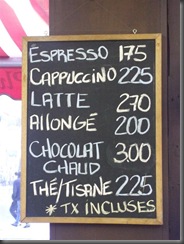 ESPRESSO 175
CAPPUCCINO 225
LATTE 270
AllONGÉ 200
CHOCOLAT 300
CHAUD
THÉ/TISANE 225
* TX INCLUSES